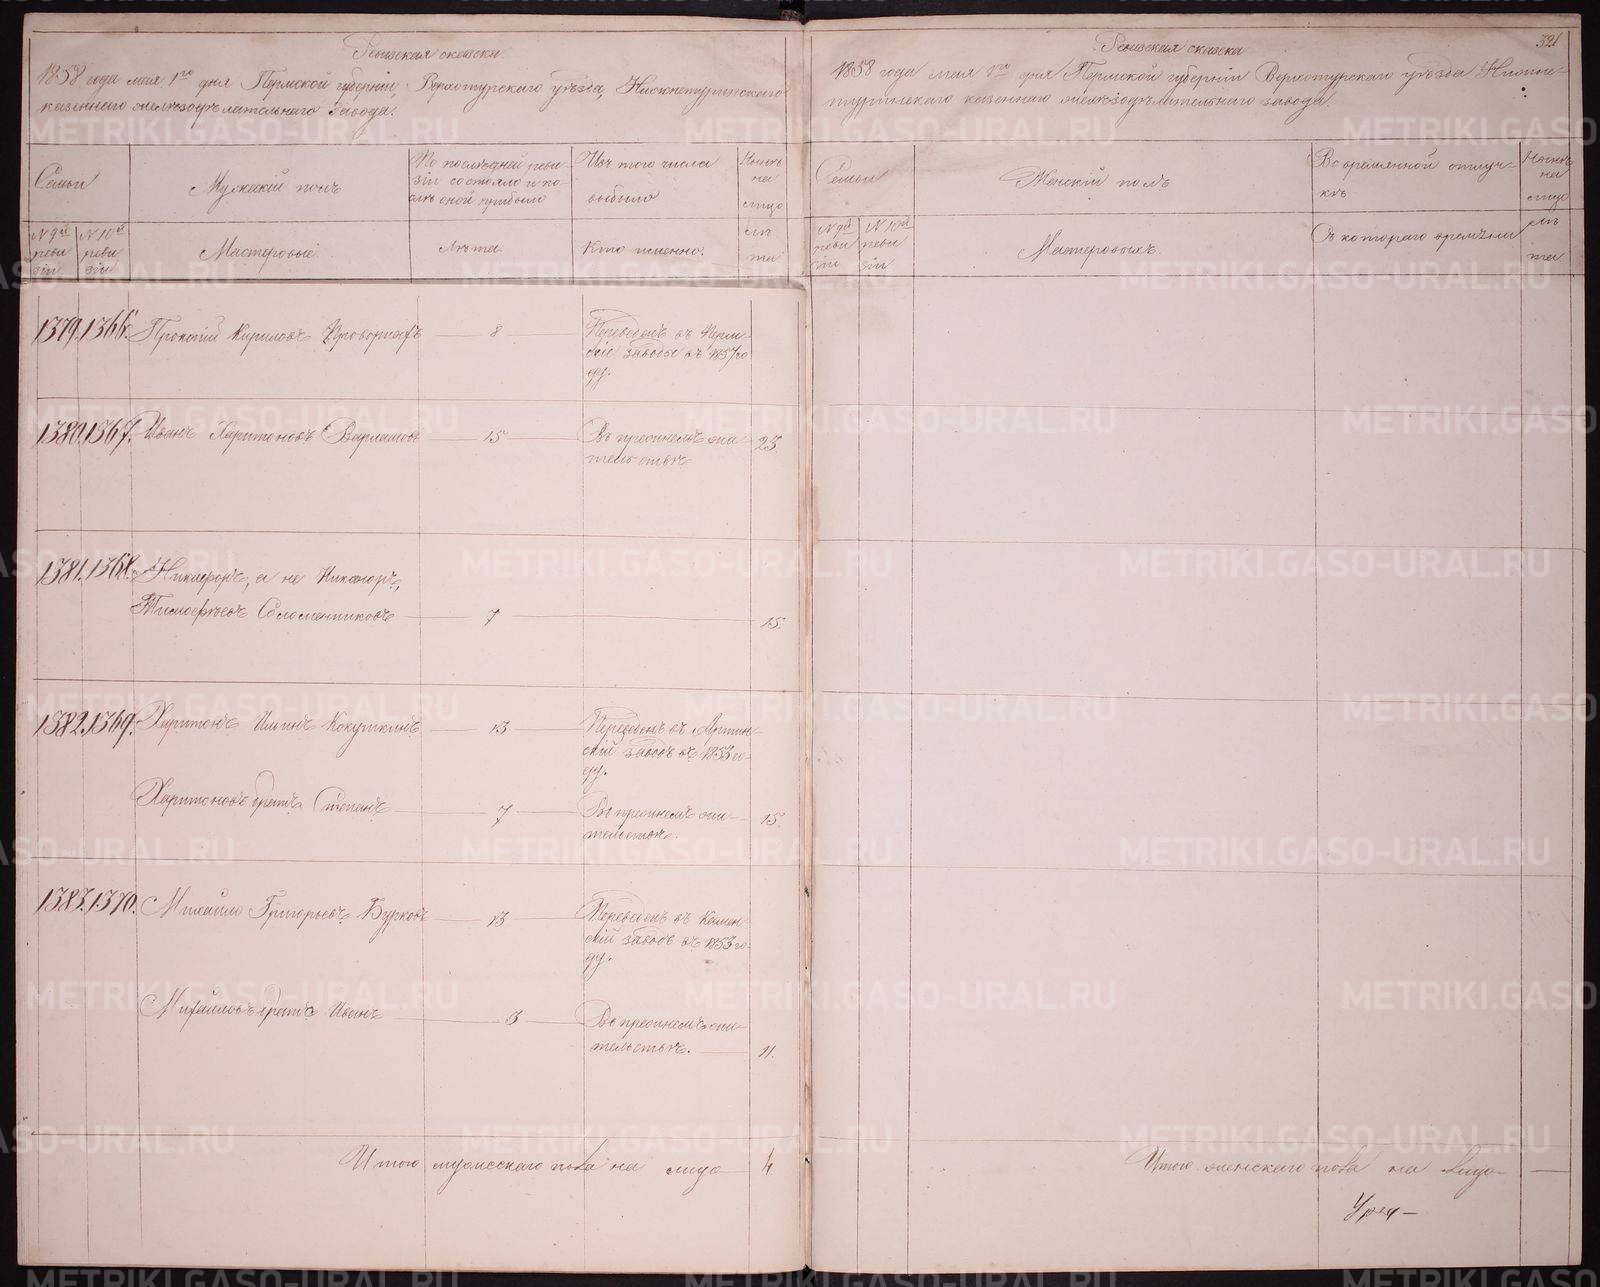 Ревизская сказка
1858 года мая 1го дня Пермской губернiи, Верхотурского уѣзда, Нижнетуринскаго
казеннаго желѣзодѣлательнаго завода.
Семьи
Мужескiй полъ
По послѣдней реви-
зiи состояло и по-
слѣ оной прибыло
Изъ того числа
выбыло
Нынѣ
на
лицо
№ 9й
реви
зiи
№ 10й
реви
зiи
Мастеровые.
Лѣта.
Кто именно.
лѣ
та
1379. 1366. Прокопiй Кириловъ 8 Переведенъ въ Перм-
скiе заводы въ 1857 го-
ду.
1380. 1367. Иванъ Харитоновъ Варламовъ 15 Въ преж немъ жи-
тельствѣ 23.
1381. 1368. Никифоръ, а не Никаноръ,
Тимофѣевъ Соломенниковъ 7 15.
1382. 1369. Харитонъ Ильинъ Кокушкинъ 13 Переведенъ въ Артин-
скiй заводъ въ 1853 го-
ду.
Харитоновъ братъ Степанъ 7 Въ прежнемъ жи-
тельствѣ. 15.
1383. 1370. Михайло Григорьевъ Бурковъ 13 Переведенъ въ Камен-
скiй заводъ въ 1853 го-
ду.
Михайловъ братъ Иванъ 3 Въ прежнемъ жи-
тельствѣ. 11.
Итого мужескаго пола на лицо 4
321
Ревизская сказка
1858 года мая 1го дня Пермской губернiи Верхотурскаго уѣзда Нижне-
туринскаго казеннаго желѣзодѣлательнаго завода.
Семьи
Женскiй полъ
Во временной отлуч-
кѣ
Нынѣ
на
лицо
№ 9й
реви
зiи
№ 10й
реви
зiи
Мастеровыхъ.
Съ котораго времѣни
лѣ
та
Итого женскаго пола на лицо —
METRIKI.GASO-URAL.RU